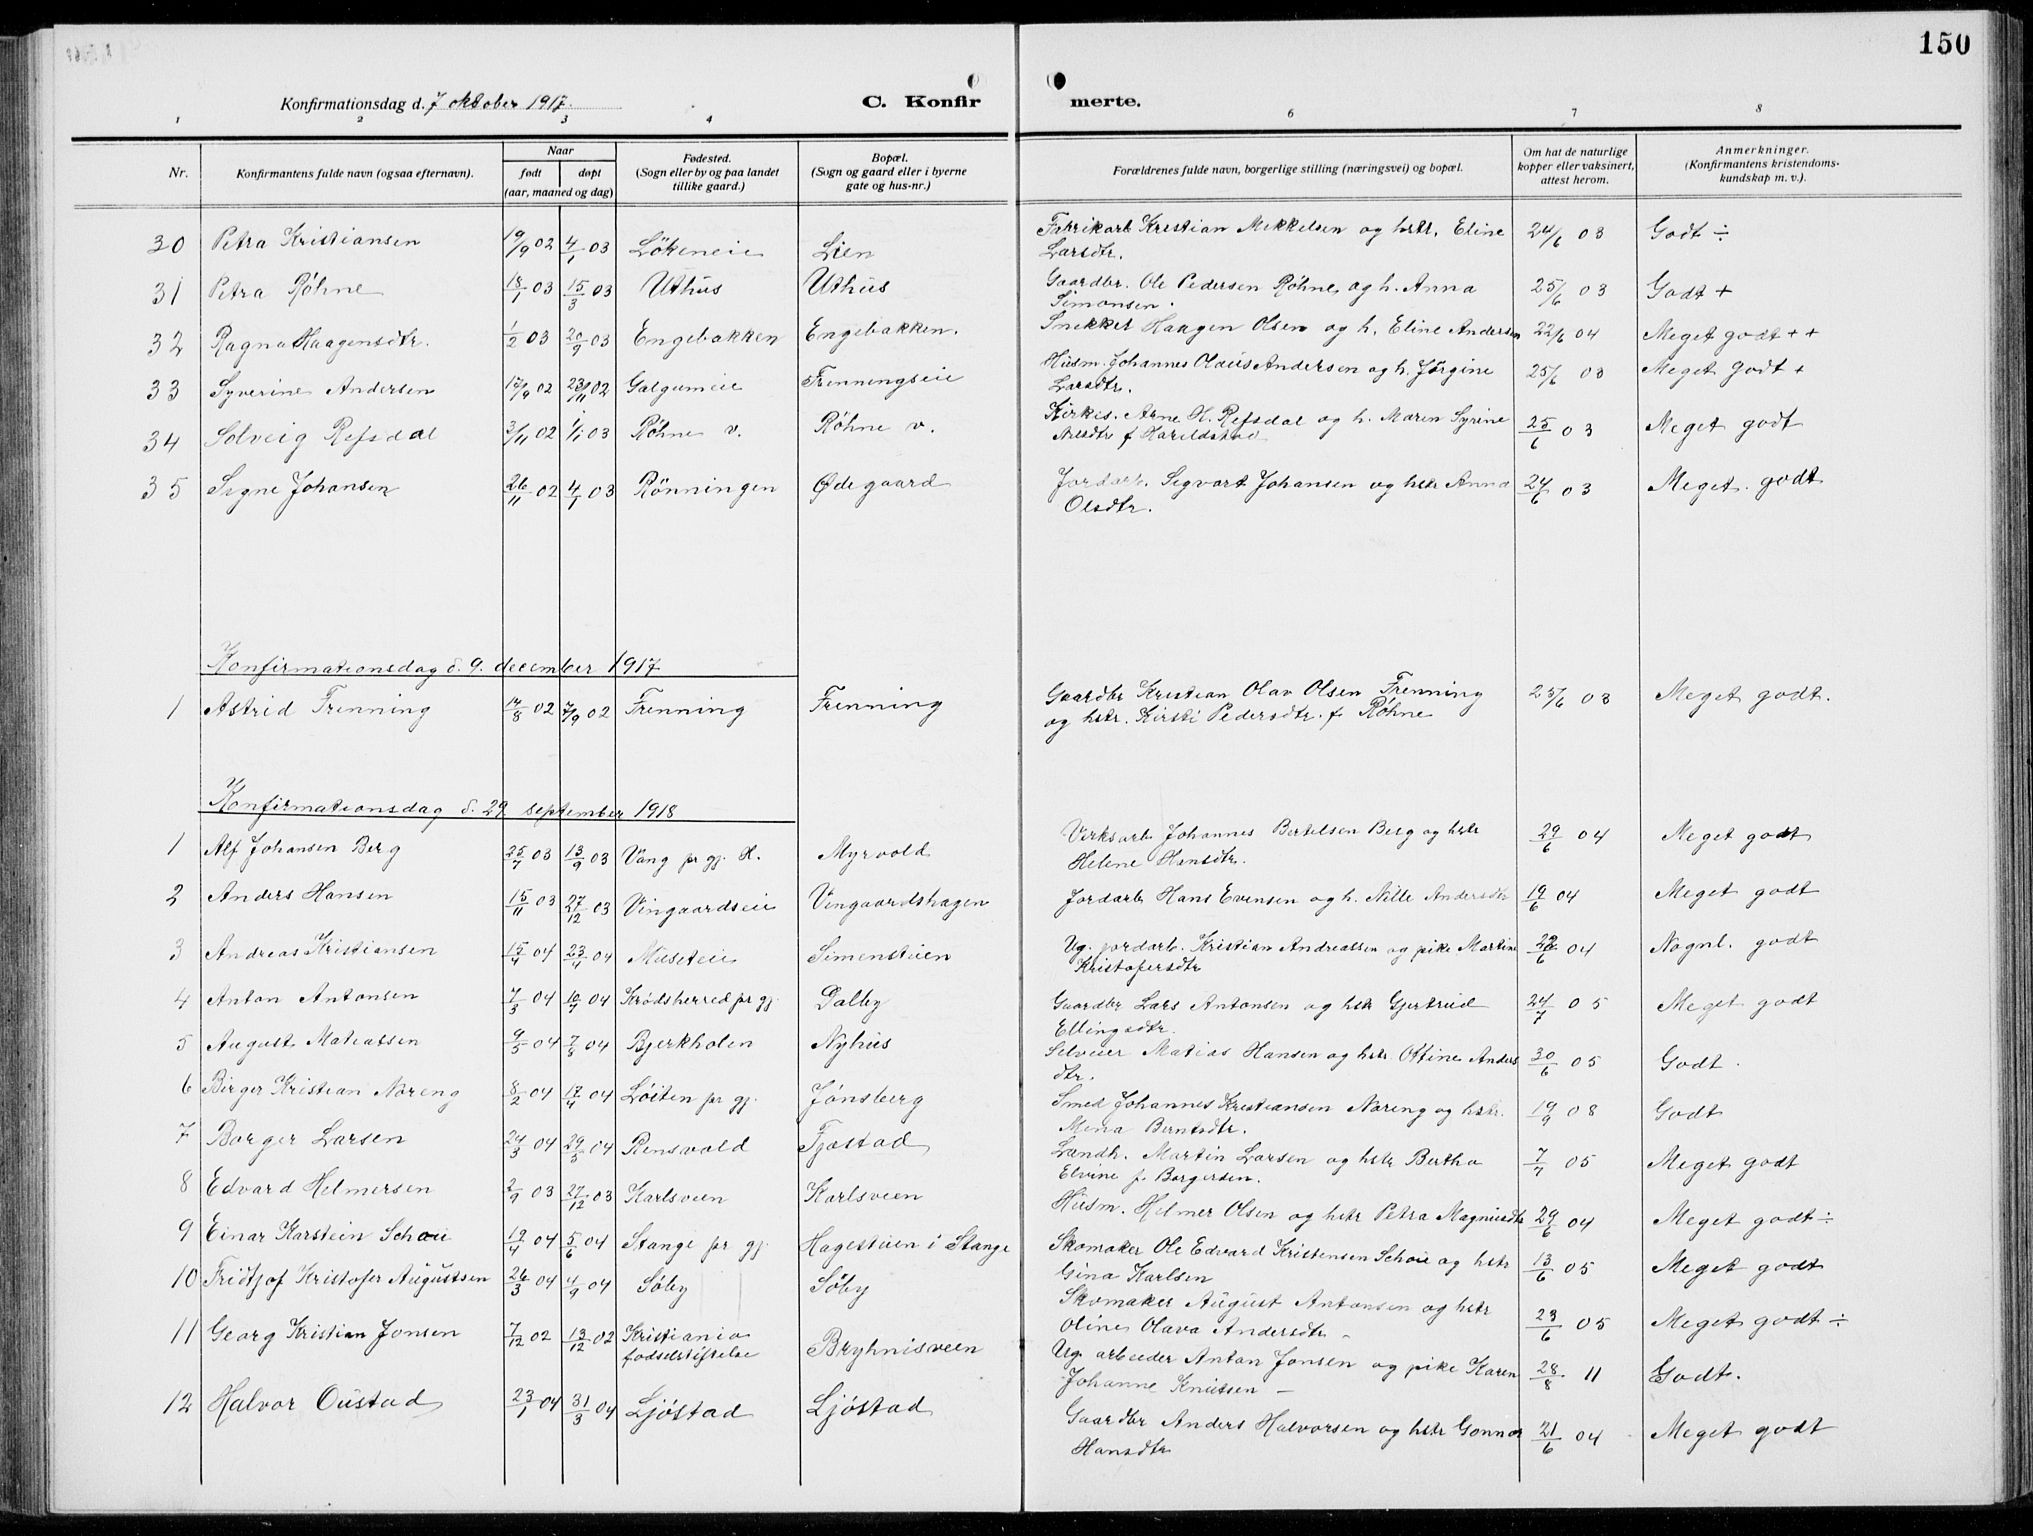 150
Konfirmationsdag d. 7 oktober 1917.
C. Konfirmerte.
1 2 3 4 6 7 8
Nr. Konfirmantens fulde navn (ogsaa efternavn). Naar født døpt (aar, maaned og dag) Fødested. (Sogn eller by og paa landet tillike gaard.) Bopæl. (Sogn og gaard eller i byerne gate og hus-nr.) Forældrenes fulde navn, borgerlige stilling (næringsvei) og bopæl. Om hat de naturlige kopper eller vaksinert, attest herom. Anmerkninger. (Konfirmantens kristendoms-kundskap m. v.).
30 Petra Kristiansen 19/9 02 4/1 03 Lökeneie Lien Fabrikarb Kristian Mekkelsen og hstr. Eline Larsdtr. 24/6 03 Godt ÷
31 Petra Röhne 18/1 03 15/3 03 Uthus Uthus Gaardbr. Ole Pedersen Röhne og h. Anna Simonsen. 25/6 03 Godt +
32 Ragna Haagensdtr. 1/2 03 20/9 03 Engebakken Engebakken. Snekker Haagen Olsen og h. Eline Andersen 22/6 04 Meget godt + +
33 Syverine Andersen 17/9 02 23/11 02 Galgumeie Frenningseie Husm. Johannes Olaus Andersen og h. Jørgine Larsdtr. 25/6 03 Meget Godt +
34 Solveig Refsdal 3/11 02 1/1 03 Röhne v. Röhne v. Kirkes. Arne H. Refsdal og h. Maren Syrine Nilsdtr f Harildstad 25/6 03 Meget godt
35 Signe Johansen 26/11 02 4/1 03 Rönningen Ødegaard Jordarb. Segvart Johansen og hstr Anna Olsdtr. 24/6 03 Meget. godt
Konfirmationsdag d. 9. december 1917
1 Astrid Frenning 14/8 02 7/9 02 Frenning Frenning Gaardbr Kristian Olav Olsen Frenning og hstr. Kirsti Pedersdtr. f Röhne 25/6 03 Meget godt.
Konfirmationsdag d. 29 september 1918
1 Alf Johansen Berg 25/7 03 13/9 03 Vang pr gj. H. Myrvold Verksarb Johannes Bertelsen Berg og hstr Helene Hansdtr. 29/6 04 Meget godt
2 Anders Hansen 15/11 03 27/12 03 Vingaardseie Vingaardshagen Jordarb Hans Evensen og h. Nille Andersdtr 19/6 04 Meget godt
3 Andreas Kristiansen 15/4 04 23/4 04 Musteie Simenstuen Ug. jordarb. Kristian Andreassen og pike Martine Kristofersdtr 22/6 04 Nognl. godt
4 Anton Antonsen 7/3 04 10/7 04 Krødsherred pr gj. Dalby Gaardbr Lars Antonsen og hstr Gjertrud Ellingsdtr. 24/7 05 Meget godt
5 August Matiassen 9/5 04 7/8 04 Bjerkholen Nyhus Selveier Matias Hansen og hstr Ottine Andersdtr. 30/6 05 Godt.
6 Birger Kristian Noreng 8/2 04 17/4 04 Löiten pr gj. Jönsberg Smed Johannes Kristiansen Noreng og hstr. Mena Berntsdtr. 19/9 08 Godt
7 Borger Larsen 24/3 04 29/5 04 Rensvold Fjæstad Landh. Martin Larsen og hstr Bertha Elvine f. Borgersen. 7/7 05 Meget godt
8 Edvard Helmersen 2/9 03 27/12 03 Karlsveen Karlsveen Husm. Helmer Olsen og hstr Petra Magnusdtr 29/6 04 Meget godt ÷
9 Einar Karstein Schou 19/4 04 5/6 04 Stange pr gj. Hagestuen i Stange Skomaker Ole Edvard Kristensen Schou og hstr Gina Karlsen 13/6 05 Meget godt
10 Fridtjof Kristofer Augustsen 26/3 04 4/9 04 Söby Söby Skomaker August Antonsen og hstr Oline Olava Andersdtr 23/6 05 Meget godt ÷
11 Georg Kristian Jonsen 7/12 02 13/12 02 Kristiania fødselstiftelse Bryhnisveen Ug. arbeider Anton Jonsen og pike Karen Johanne Knutsen – 28/8 11 Godt.
12 Halvor Oustad 23/1 04 31/3 04 Ljöstad Ljöstad Gaardbr Anders Halvorsen og hstr Gonnor Hansdtr 21/6 04 Meget godt